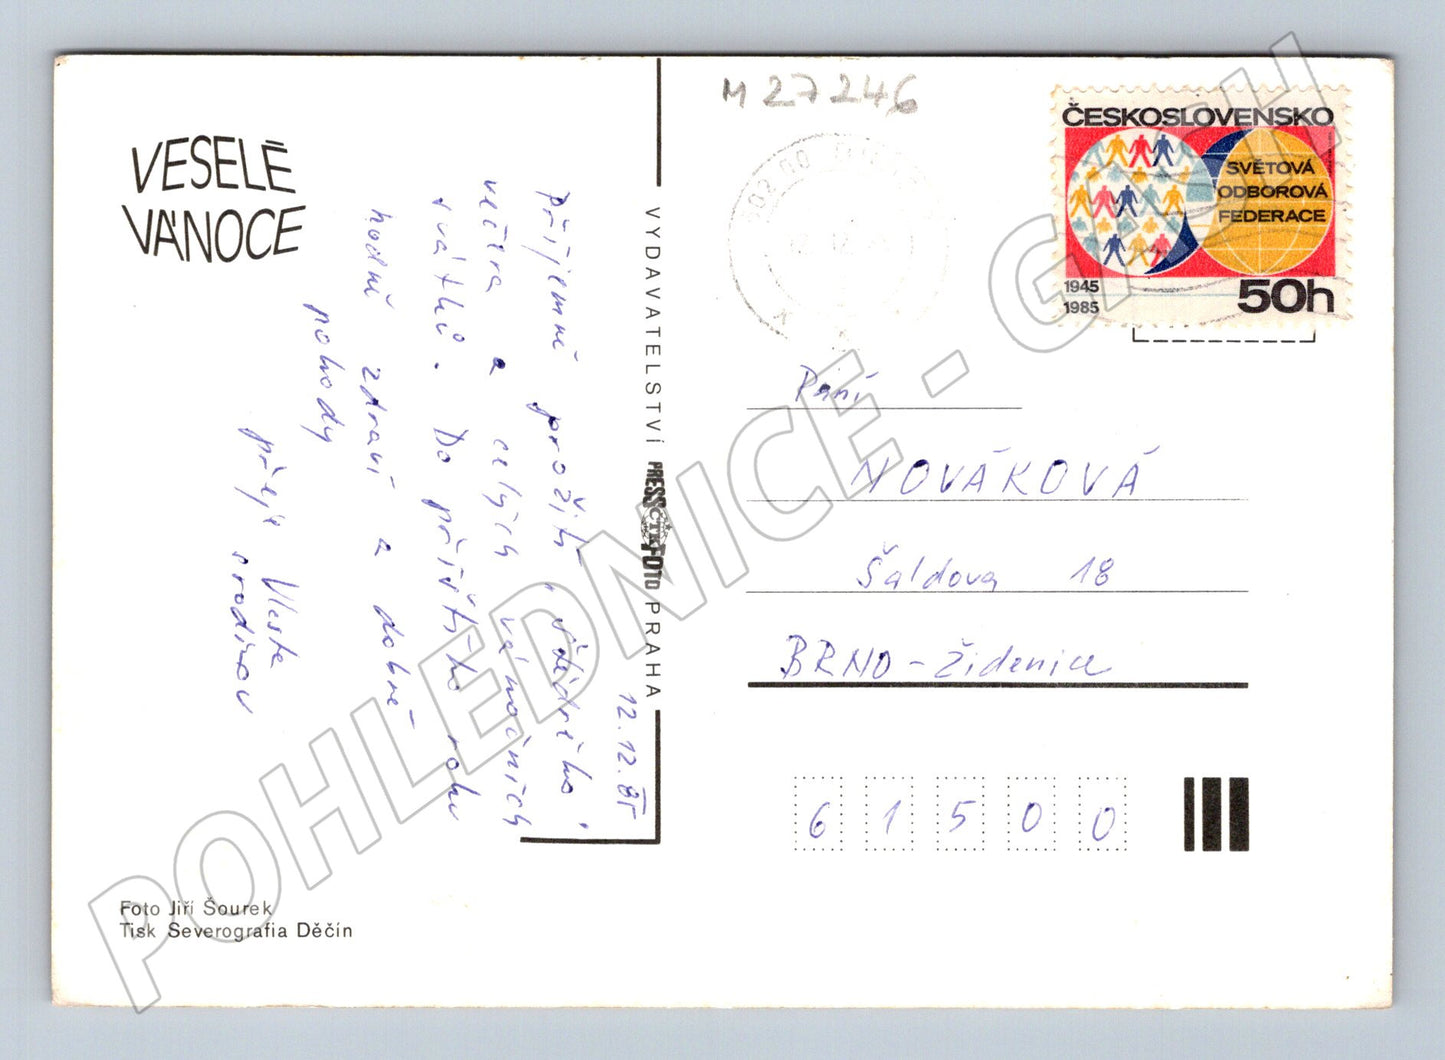 VESELÉ
VÁNOCE
12.12.85
Příjemné prožití štědrého
večera a celých vánočních
svátků. Do příštího roku
hodně zdraví a dobré
pohody
přeje Vlasta
s rodinou
Foto Jiří Šourek
Tisk Severografia Děčín
VYDAVATELSTVÍ PRESSFOTO PRAHA
ČTK
M 27246
ČESKOSLOVENSKO
SVĚTOVÁ
ODBOROVÁ
FEDERACE
1945
1985
50h
Paní
NOVÁKOVÁ
Šaldova 18
BRNO - Židenice
6 1 5 0 0
POHLEDNICE - GASH